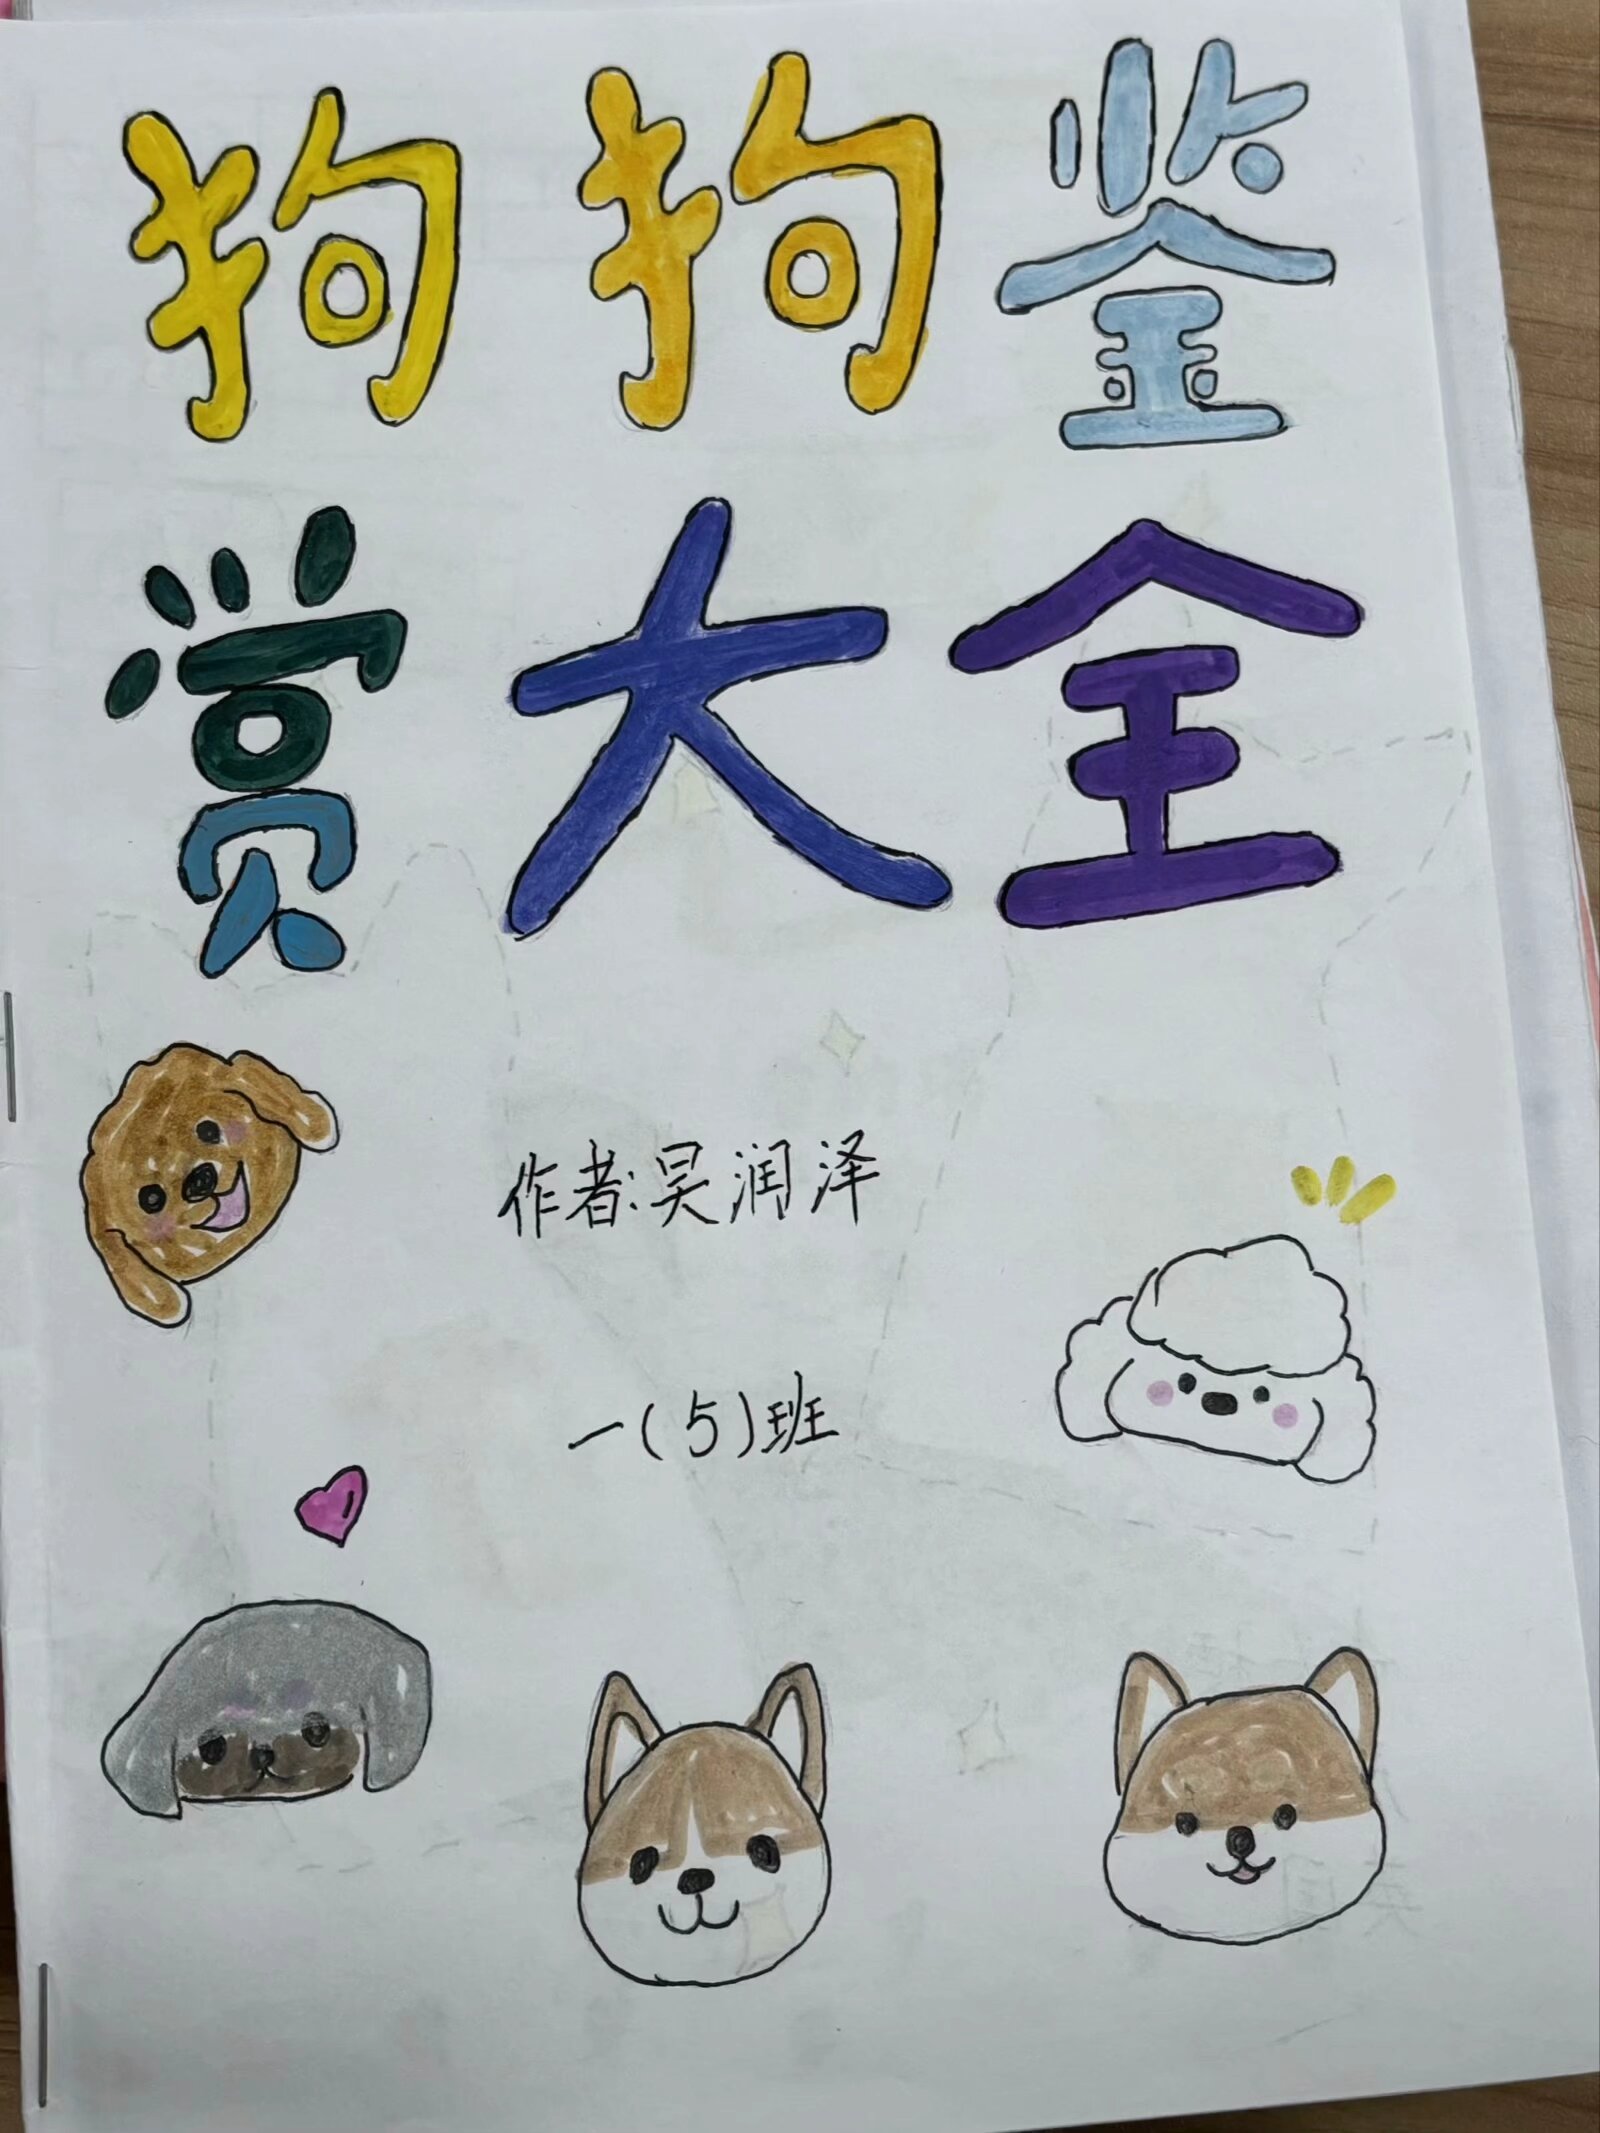 狗狗鉴
赏大全
作者:吴润泽
一(5)班